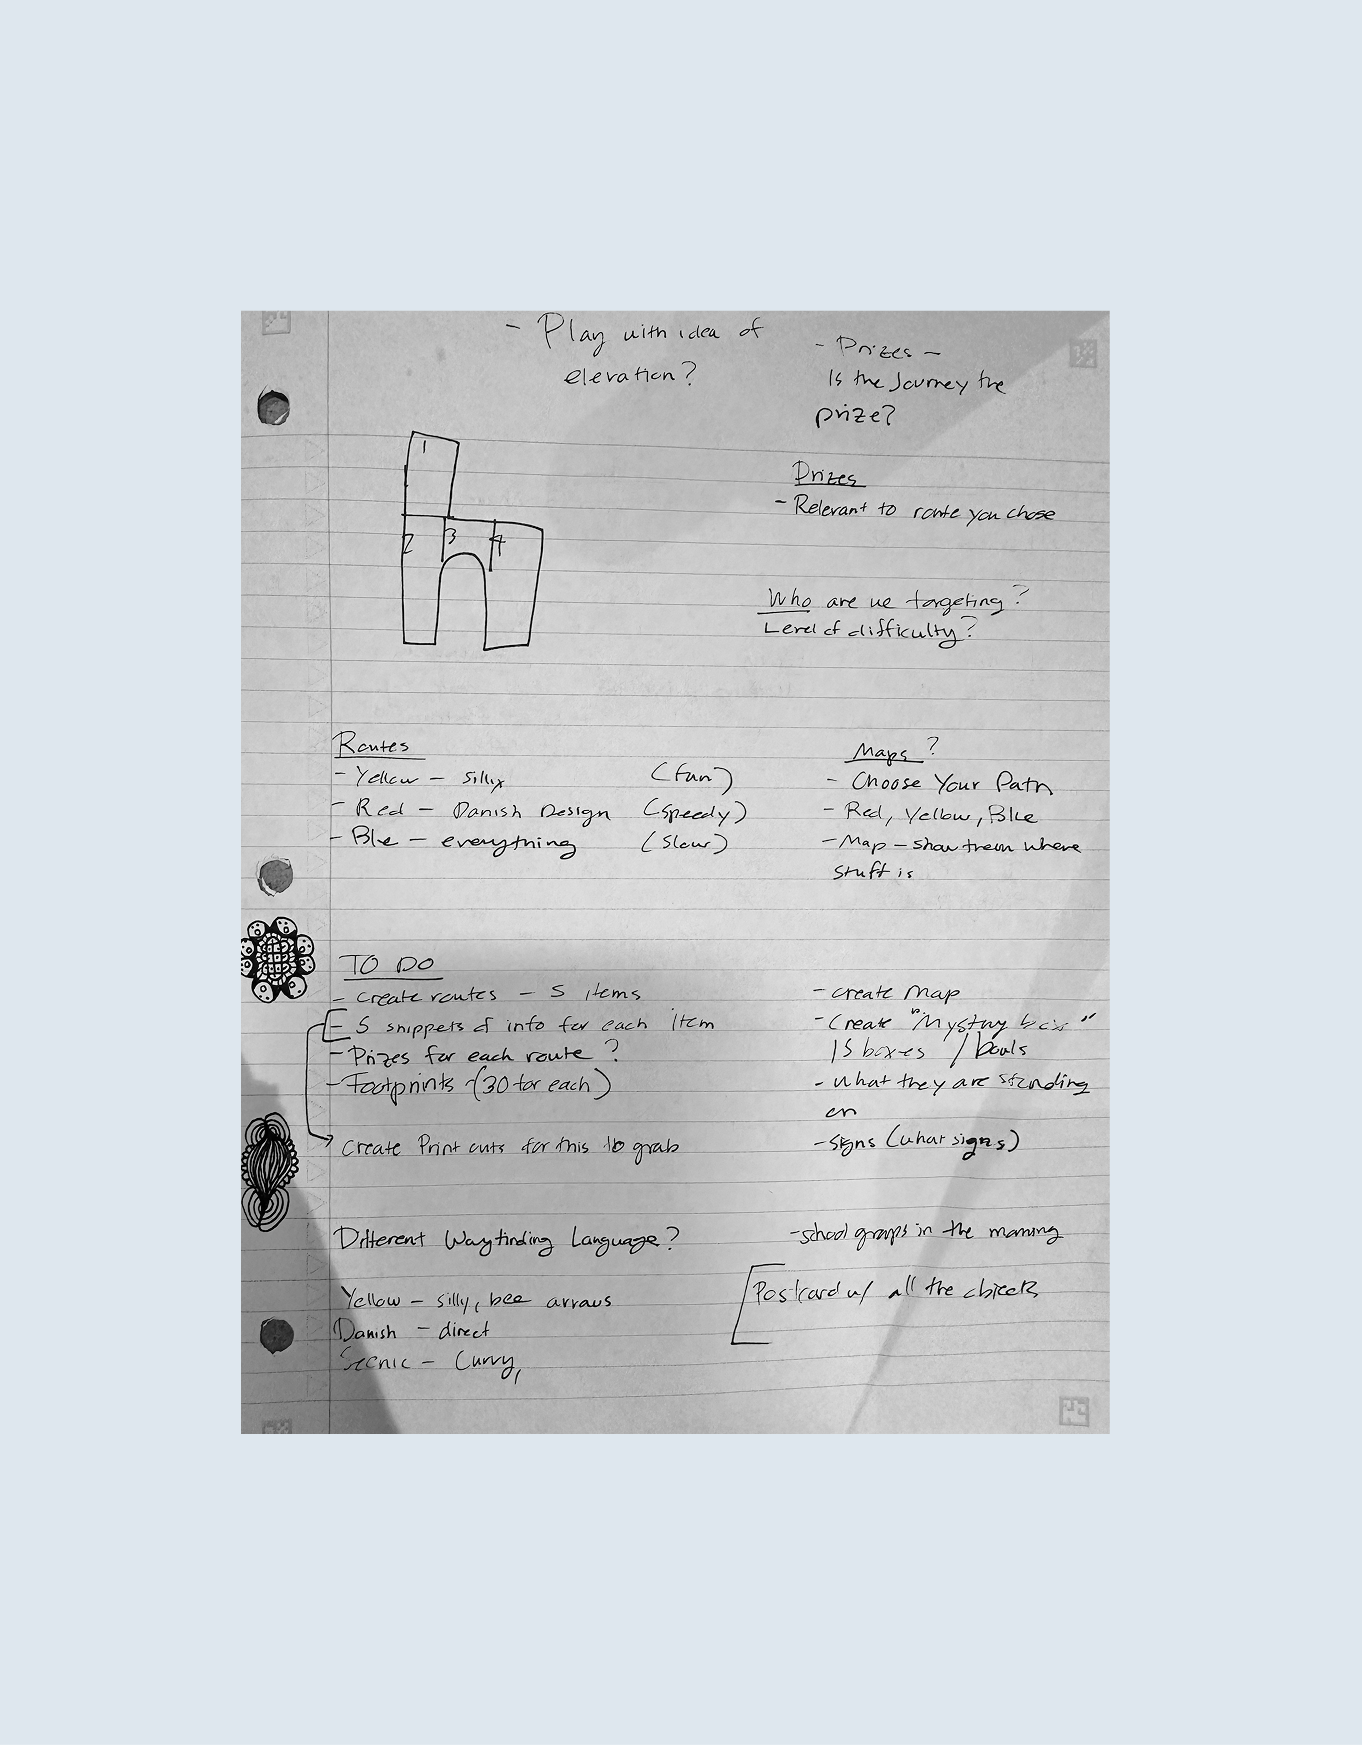 - Play with idea of
elevation?
- Prizes -
Is the Journey the
prize?
1
2
3
4
Prizes
- Relevant to route you chose
Who are we targeting?
Level of difficulty?
Routes
- Yellow - silly (fun)
- Red - Danish Design (speedy)
- Blue - everything (slow)
Maps?
- Choose Your Path
- Red, Yellow, Blue
- Map - show them where
stuff is
TO DO
- create routes - 5 items
- 5 snippets of info for each item
- Prizes for each route?
- Footprints - (30 for each)
Create Print outs for this to grab
- create map
- Create "Mystery box"
15 boxes / bowls
- what they are standing
on
- signs (what signs)
Different Wayfinding Language?
Yellow - silly, bee arrows
Danish - direct
Scenic - Curvy,
- school groups in the morning
Postcard w/ all the objects